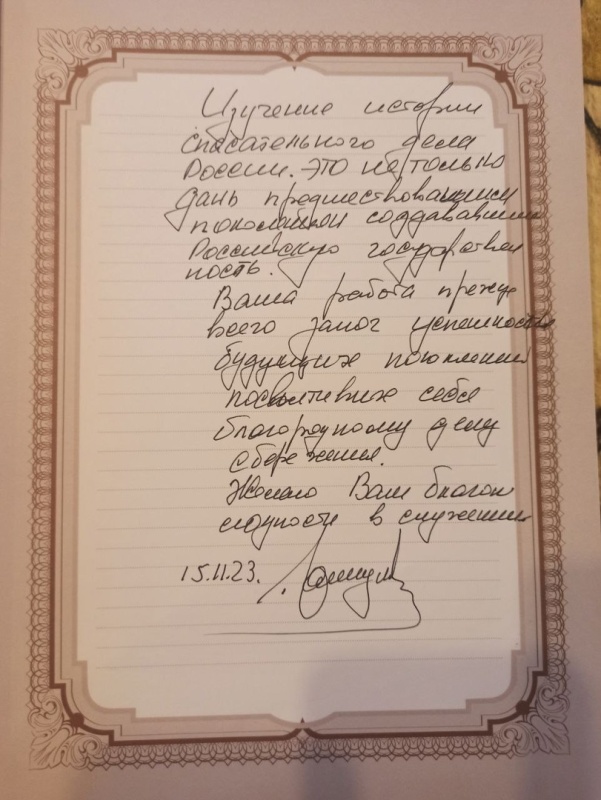 Изучение истории
спасательного дела
России. это не только
дань предшествовавшим
поколениям создававшим
Российскую государствен
ность.
Ваша работа прежде
всего залог успешности
будующих поколении
посвятивших себя
благородному делу
сбережения.
Желаю Вам благом
в служении
15.11.23.